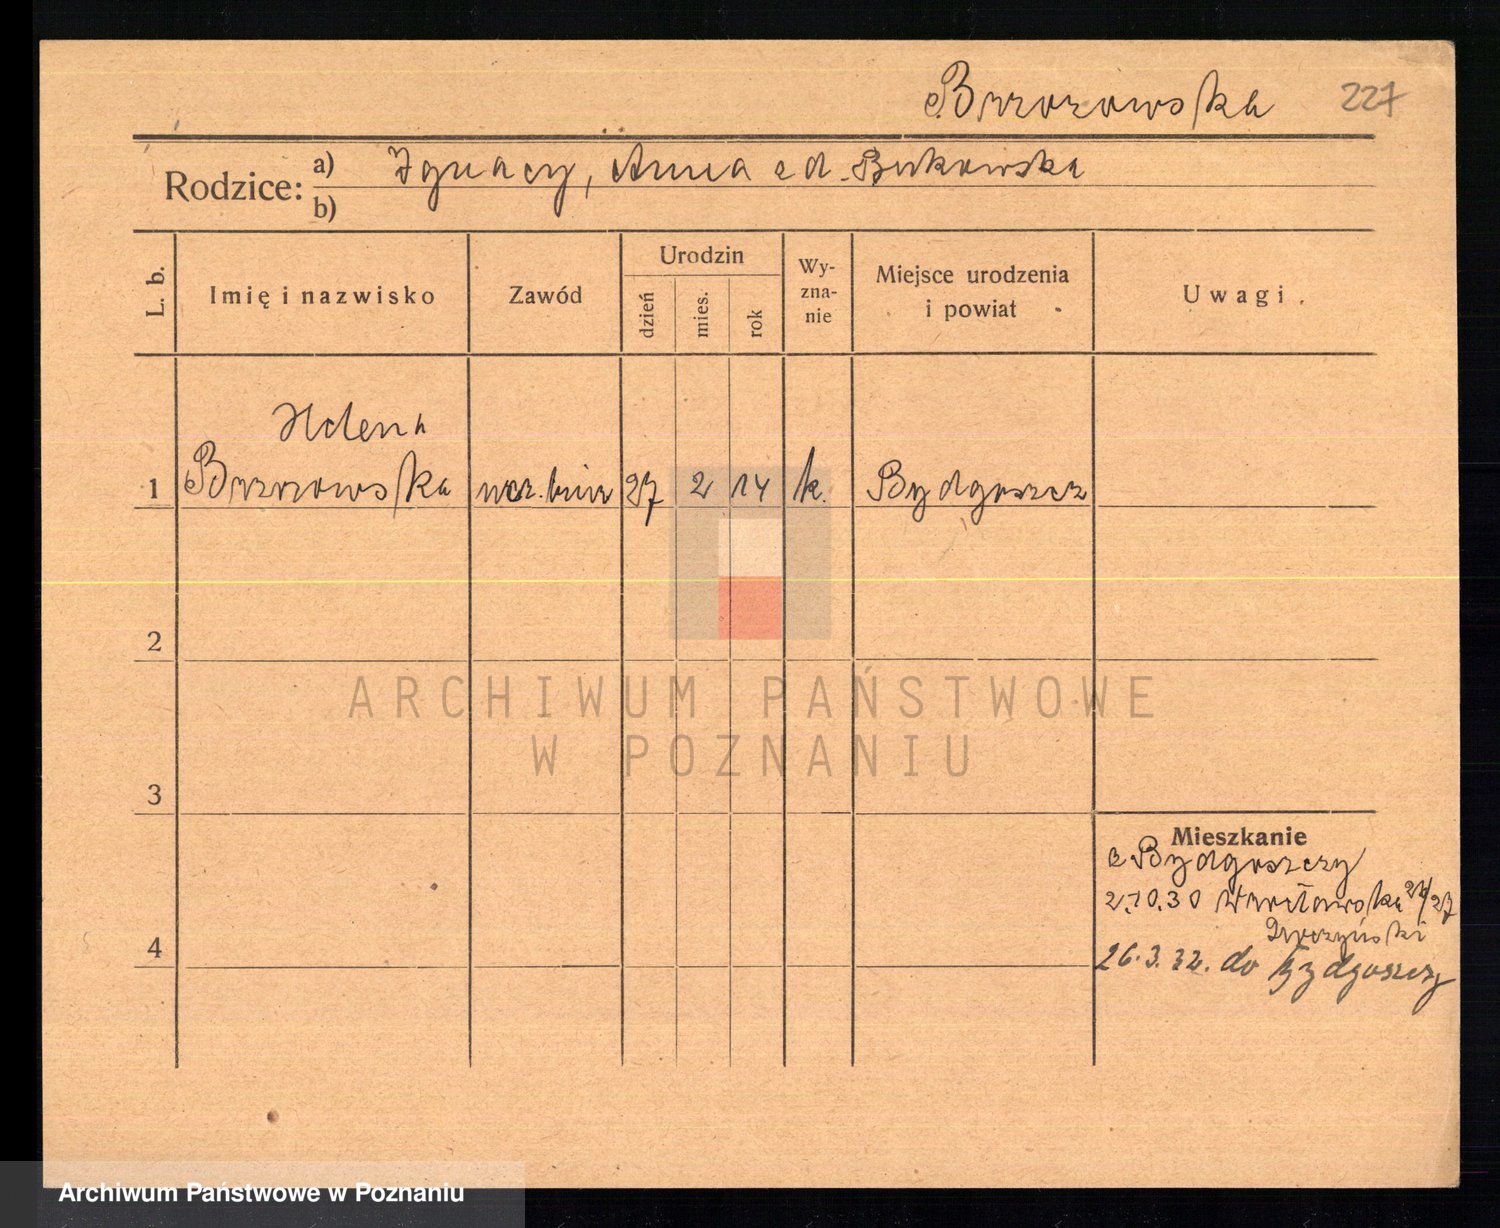 Brzozowska 227
Rodzice: a) Ignacy, Anna zd. Bukowska
b)
L. b. Imię i nazwisko Zawód Urodzin Wyznanie Miejsce urodzenia i powiat Uwagi
dzień mies. rok
Helena
1 Brzozowska ucz. biur 27 2 14 k. Bydgoszcz
2
ARCHIWUM PAŃSTWOWE
W POZNANIU
3
Mieszkanie
z Bydgoszczy
2.10.30 27
4
26.3.32. do Bydgoszczy
Archiwum Państwowe w Poznaniu